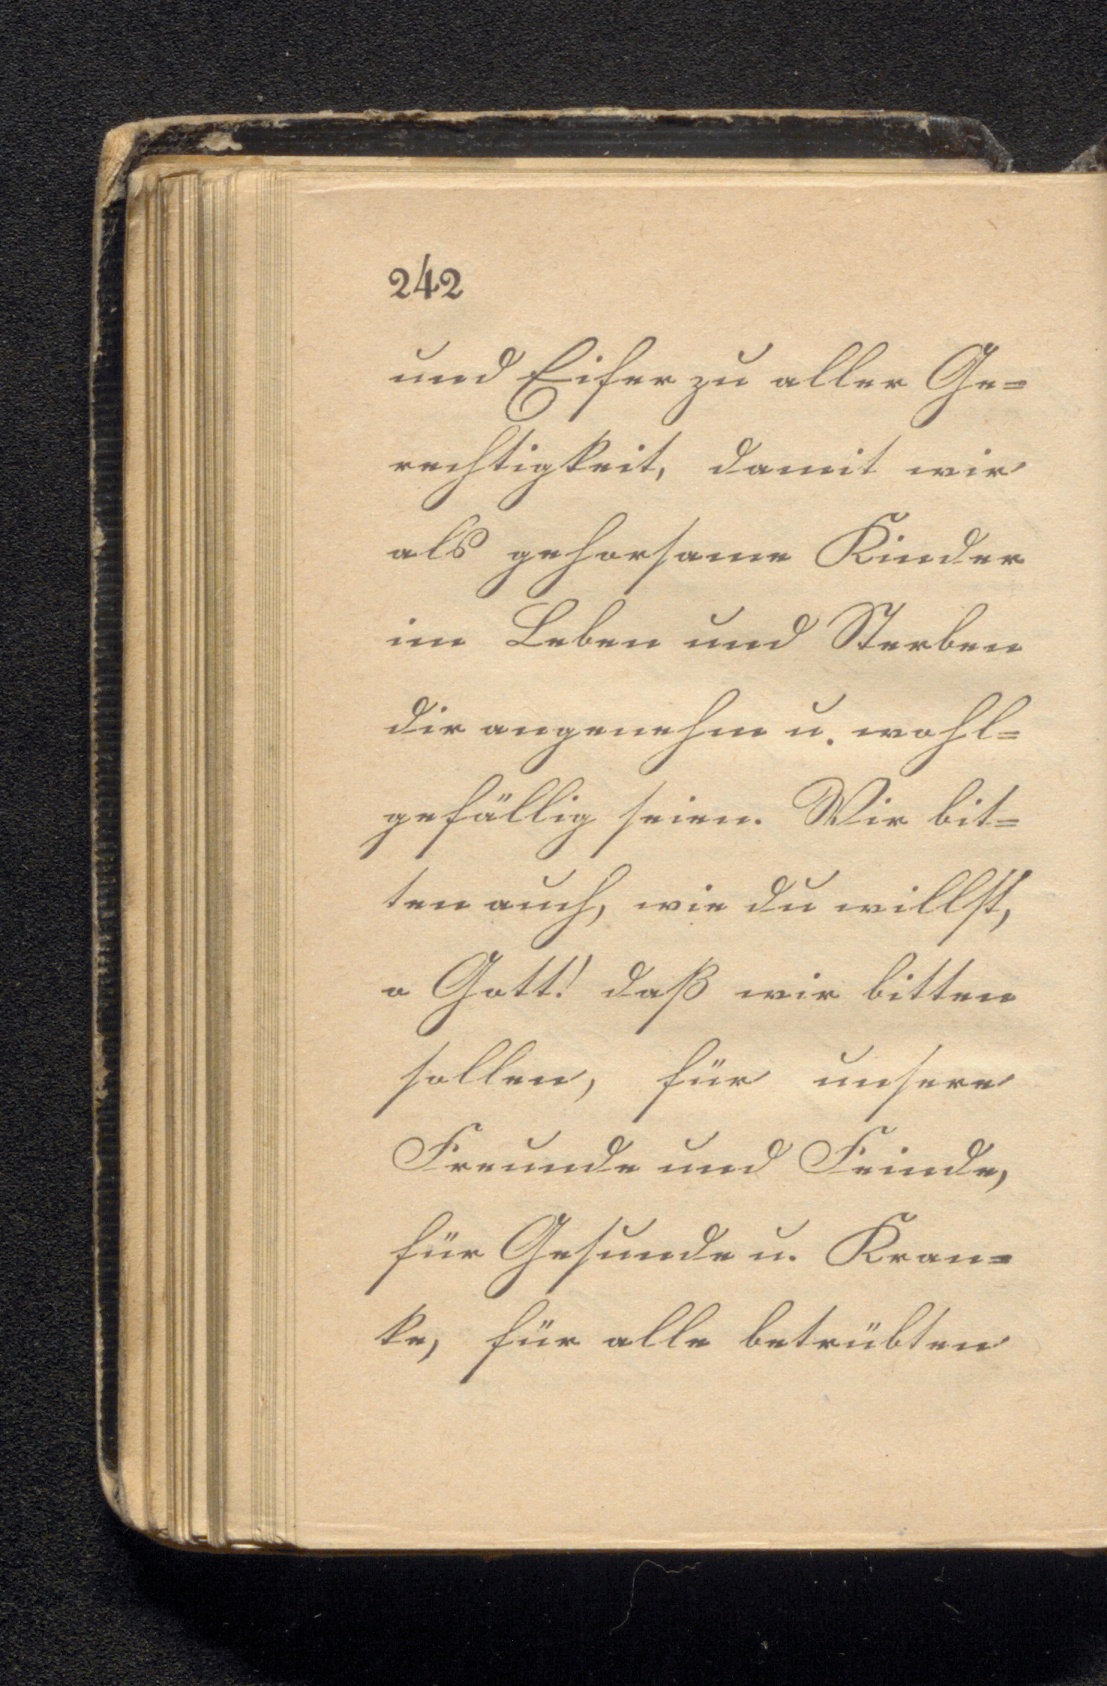 242
und Eifer zu aller Ge=
rechtigkeit, damit wir
als gehorsame Kinder
im Leben und Sterben
dir angenehm u. wohl=
gefällig seien. Wir bit=
ten auch, wie du willst,
o Gott! daß wir bitten
sollen, für unsere
Freunde und Feinde,
für Gesunde u. Kran=
ke, für alle betrübten